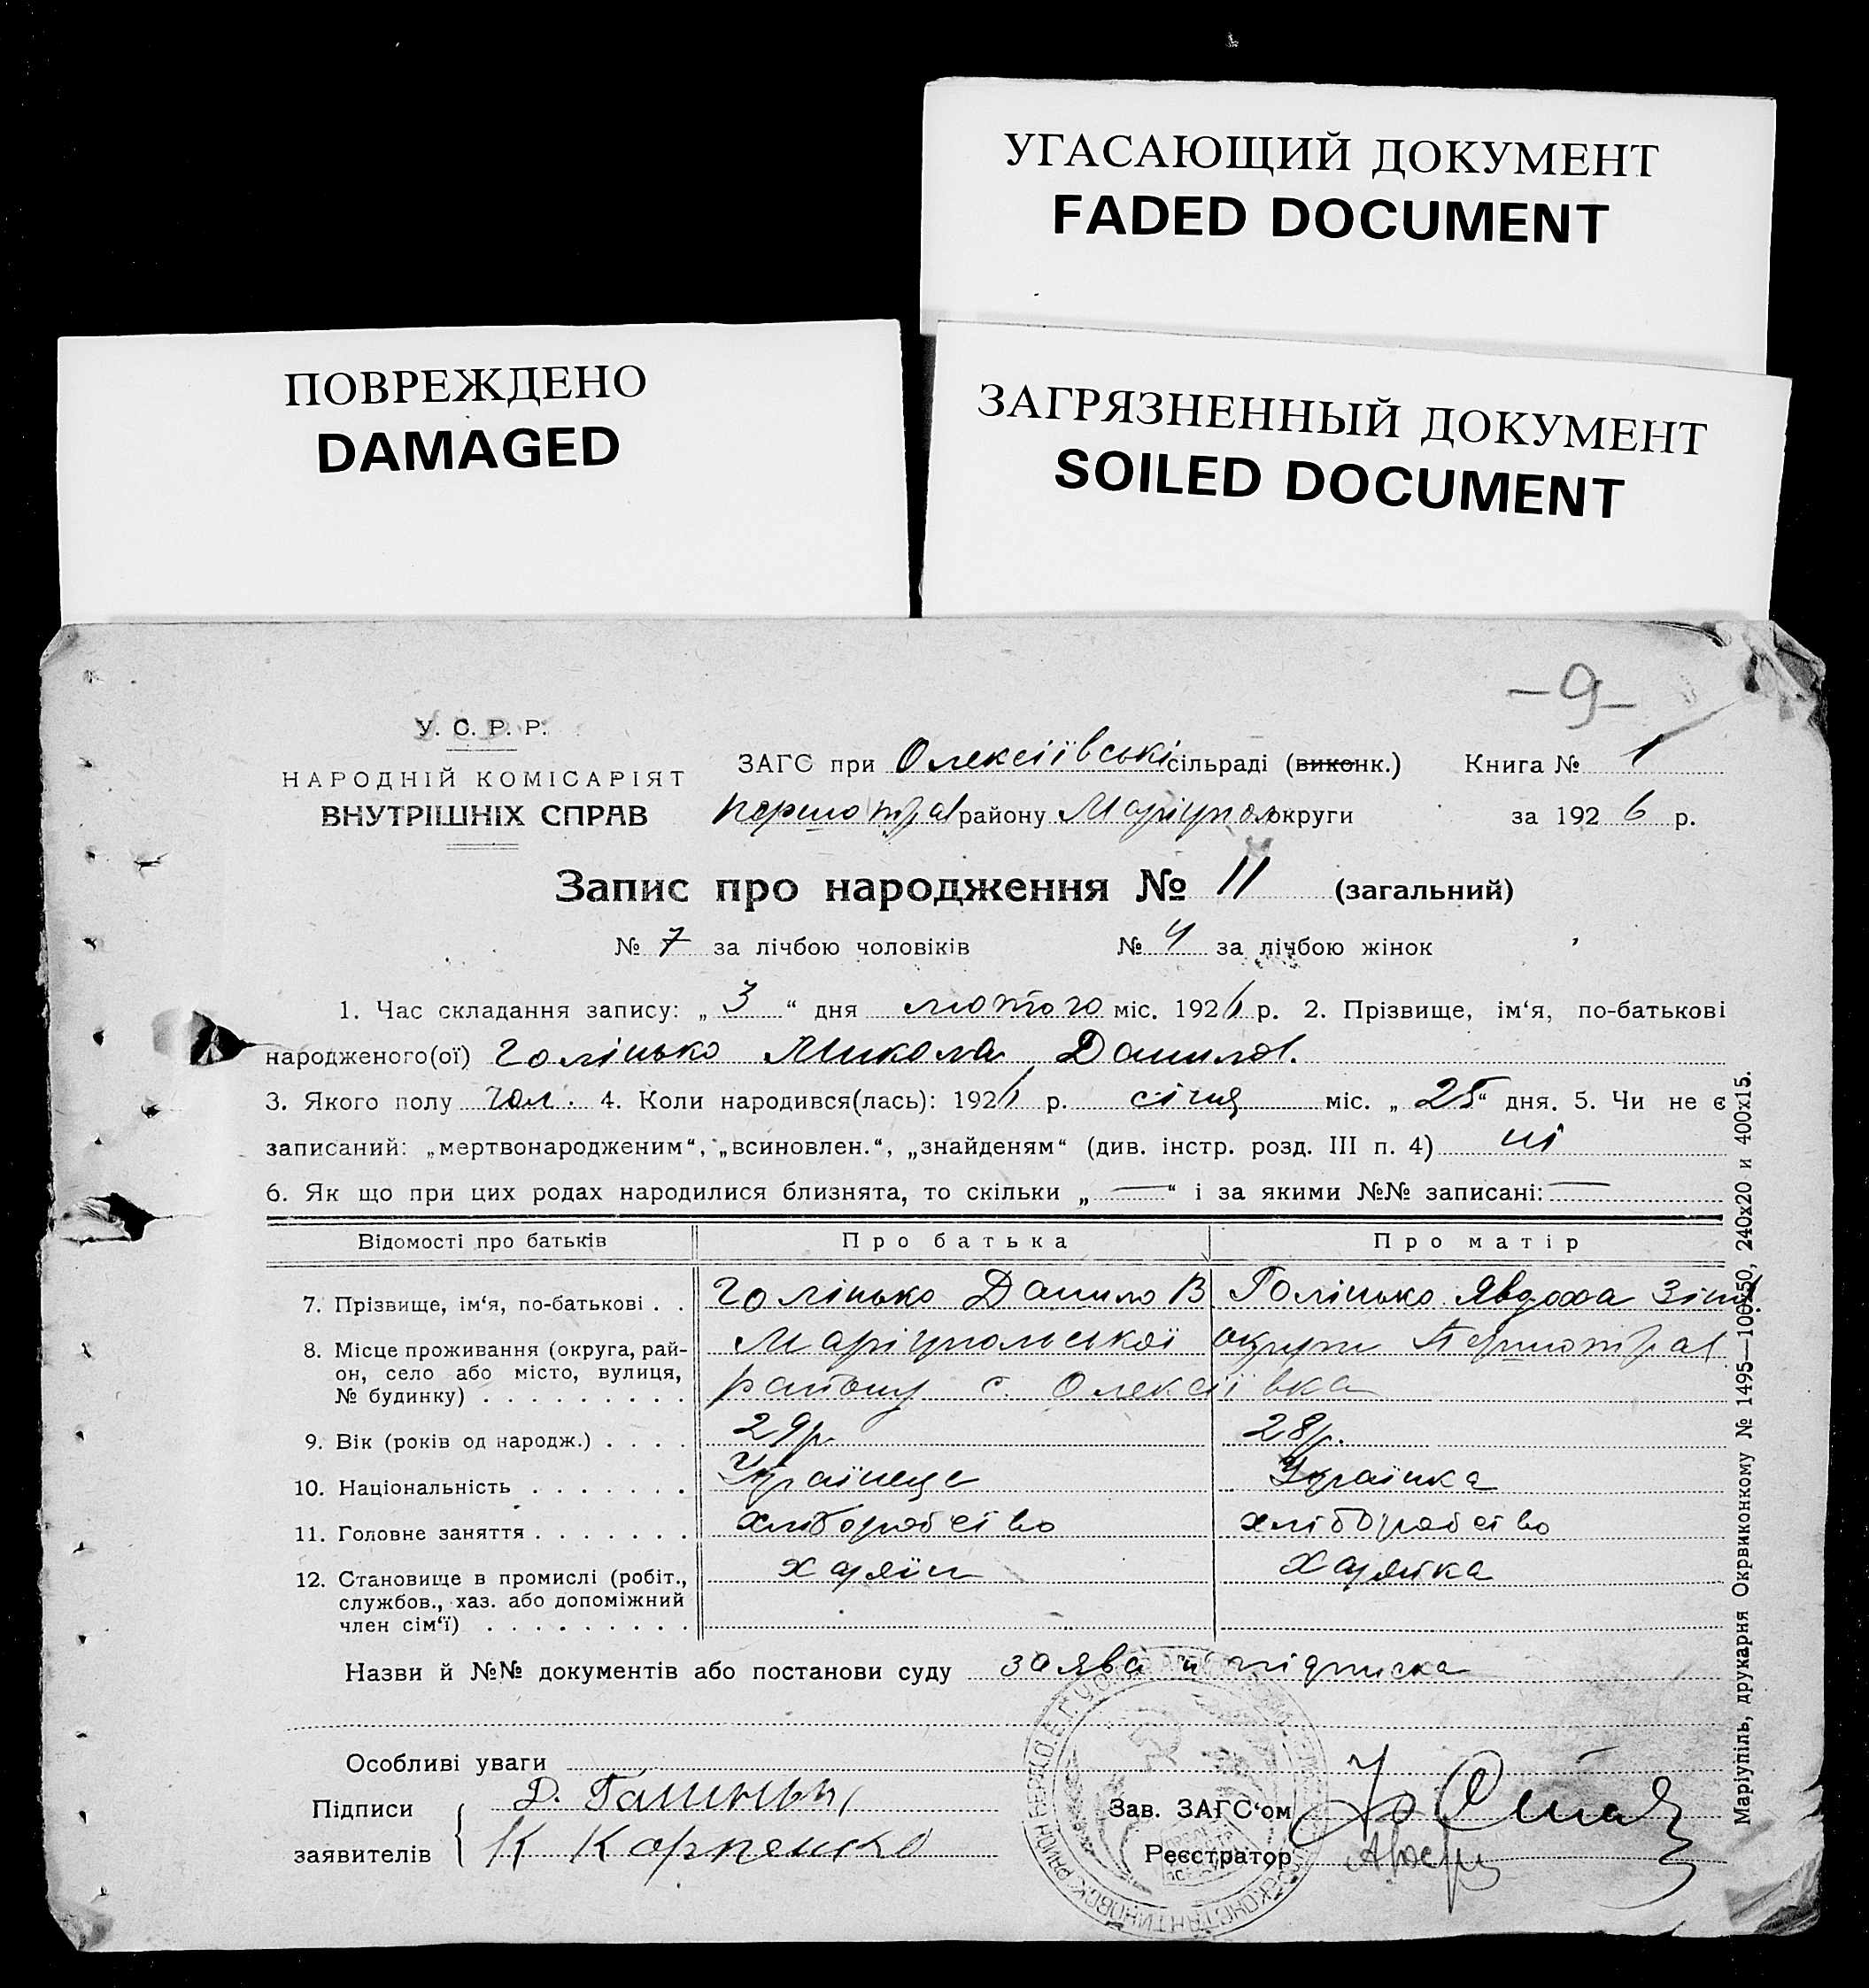 УГАСАЮЩИЙ ДОКУМЕНТ
FADED DOCUMENT
ПОВРЕЖДЕНО
DAMAGED
ЗАГРЯЗНЕННЫЙ ДОКУМЕНТ
SOILED DOCUMENT
-9-
У. С. Р. Р.
НАРОДНІЙ КОМІСАРІЯТ
ВНУТРІШНІХ СПРАВ
ЗАГС при Олексіївські сільраді (виконк.) Книга № 1
Першотрав району Маріупол округи за 1926 р.
Запис про народження № 11 (загальний)
№ 7 за лічбою чоловіків № 4 за лічбою жінок
1. Час складання запису: „3“ дня лютого міс. 1926 р. 2. Прізвище, ім‘я, по-батькові
народженого(ої) Голінько Микола Данилов.
3. Якого полу чол. 4. Коли народився(лась): 1926 р. січня міс. „25“ дня. 5. Чи не є
записаний: „мертвонародженим“, „всиновлен.“, „знайденям“ (див. інстр. розд. III п. 4) ні
6. Як що при цих родах народилися близнята, то скільки „—“ і за якими №№ записані: —
Відомості про батьків Про батька Про матір
7. Прізвище, ім‘я, по-батькові . . Голінько Данило В. Голінько Явдоха Зінов
8. Місце проживання (округа, рай- Маріупольської округи Першотрав
он, село або місто, вулиця,
№ будинку) . . . . . . . . . району с. Олексіївка
9. Вік (років од народж.) . . . . 29р. 28р.
10. Національність . . . . . . . Українець Українка
11. Головне заняття . . . . . . . хліборобство хліборобство
12. Становище в промислі (робіт., хазяїн хазяйка
службов., хаз. або допоміжний
член сім‘ї) . . . . . . . . .
Назви й №№ документів або постанови суду заява й підписка
Особливі уваги
Підписи Д.
заявителів К Карпенко
Зав. ЗАГС‘ом
Реєстратор
Маріупіль, друкарня Окрвиконкому № 1495—100x50, 240x20 и 400x15.